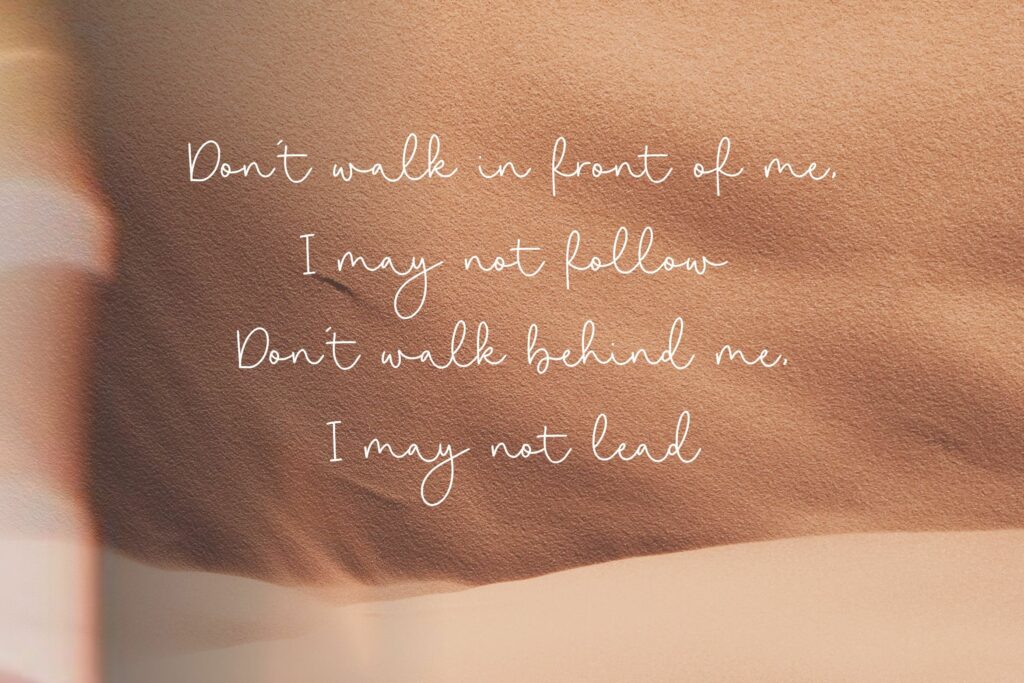 Don't walk in front of me,
I may not follow
Don't walk behind me,
I may not lead